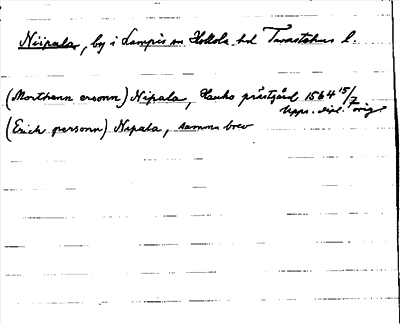 Niipala, by i Lampis sn Hollola hd Tavastehus l.
(Morthenn ersonn) Nipala, Hauho prästgård 1564 15/7
Upps. dipl. orig
(Erich persson) Nipala, samma brev